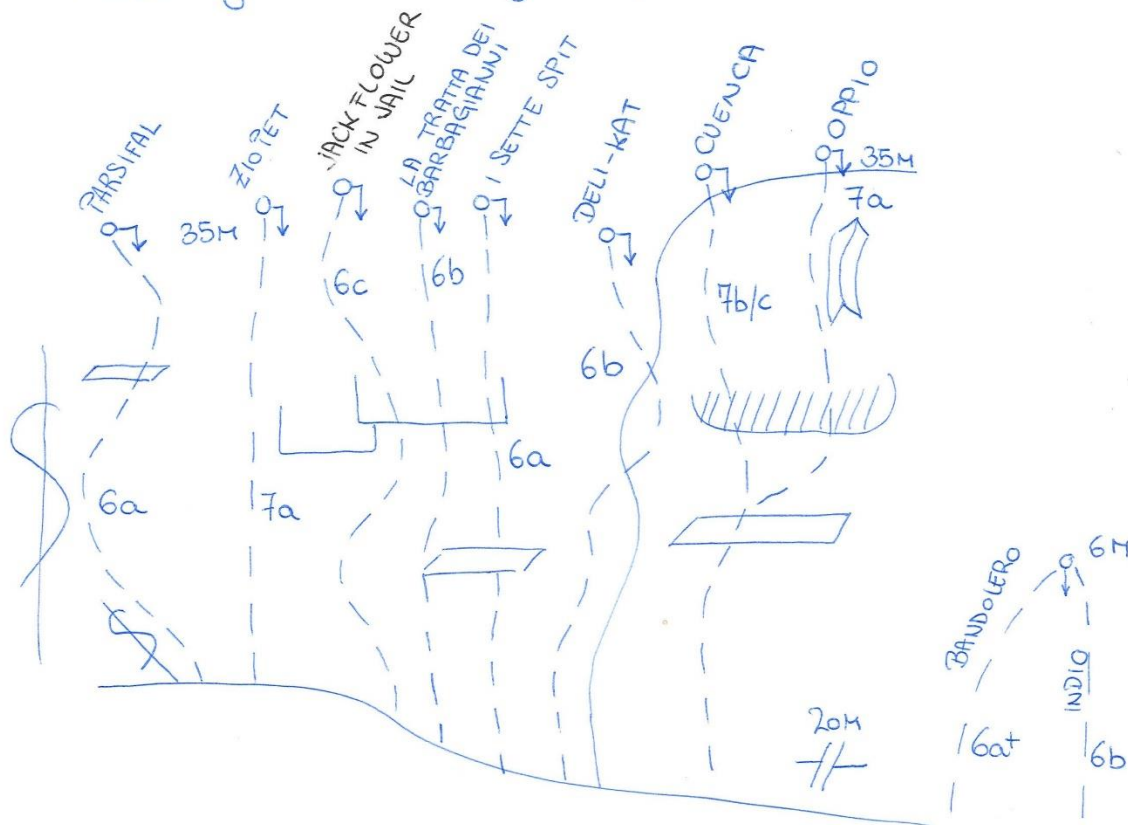 PARSIFAL
ZIOPET
JACK FLOWER
IN JAIL
LA TRATTA DEI
BARBAGIANNI
I SETTE SPIT
DELI-KAT
CUENCA
OPPIO
35M
35M
7a
6c
6b
7b/c
6b
6a
6a
7a
BANDOLERO
6M
INDIO
20M
6a+
6b